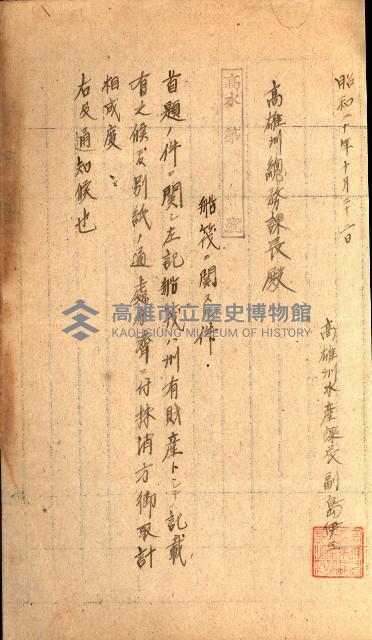 昭和二十年十月二十一日
高雄州水産課長副島伊三
高雄州總務課長殿
高水第 號
船筏ニ関スル件
首題ノ件ニ関シ左記船筏ハ州有財産トシテ記載
有之候處別紙ノ通處分濟ニ付抹消方御取計
相成度
右及通知候也
高雄市立歷史博物館
KAOHSIUNG MUSEUM OF HISTORY